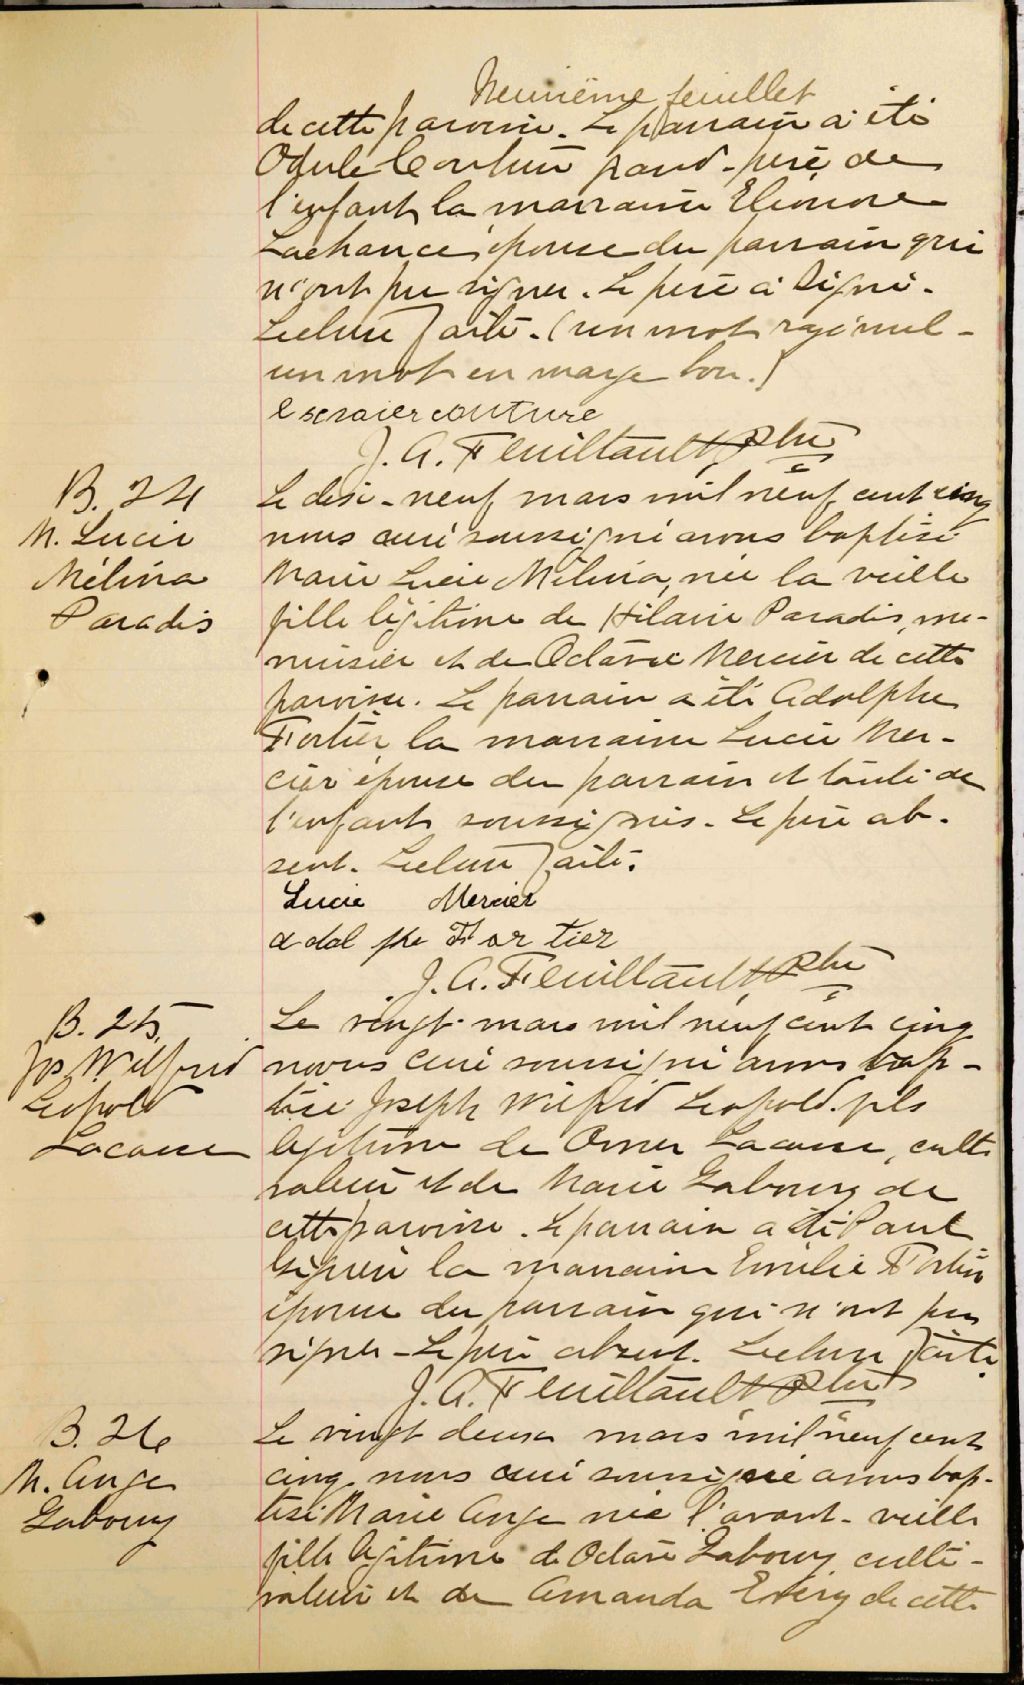 Neuvième feuillet
de cette paroisse. Le parrain a été
Odule Couture grand-père de
l'enfant, la marraine Eléonore
Lachance épouse du parrain qui
n'ont pu signer. Le père a signé.
Lecture faite. (un mot rayé nul -
un mot en marge bon.)
couture
J. A. Feuiltault Ptre
B. 24
M. Lucie
Mélina
Paradis
Le dix-neuf mars mil neuf cent cinq
nous curé soussigné avons baptisé
Marie Lucie Mélina, née la veille
fille légitime de Hilaire Paradis, me-
nuisier et de Octavie Mercier de cette
paroisse. Le parrain a été Adolphe
Fortier la marraine Lucie Mer-
cier épouse du parrain et tante de
l'enfant soussignés. Le père ab-
sent. Lecture faite.
Lucie Mercier
adol phe For tier
J. A. Feuiltault Ptre
B. 25
Jos Wilfrid
Léopold
Lacasse
Le vingt mars mil neuf cent cinq
nous curé soussigné avons bap-
tisé Joseph Wilfrid Léopold fils
légitime de Omer Lacasse, culti
vateur et de Marie Gaboury de
cette paroisse. Le parrain a été Paul
la marraine Emélie Fortin
épouse du parrain qui n'ont pu
signer - Le père absent. Lecture faite.
J. A. Feuiltault Ptre
B. 26
M. Ange
Gaboury
Le vingt deux mars mil neuf cent
cinq nous curé soussigné avons bap-
tisé Marie Ange née l'avant-veille
fille légitime de Octave Gaboury culti-
vateur et de Amanda de cette